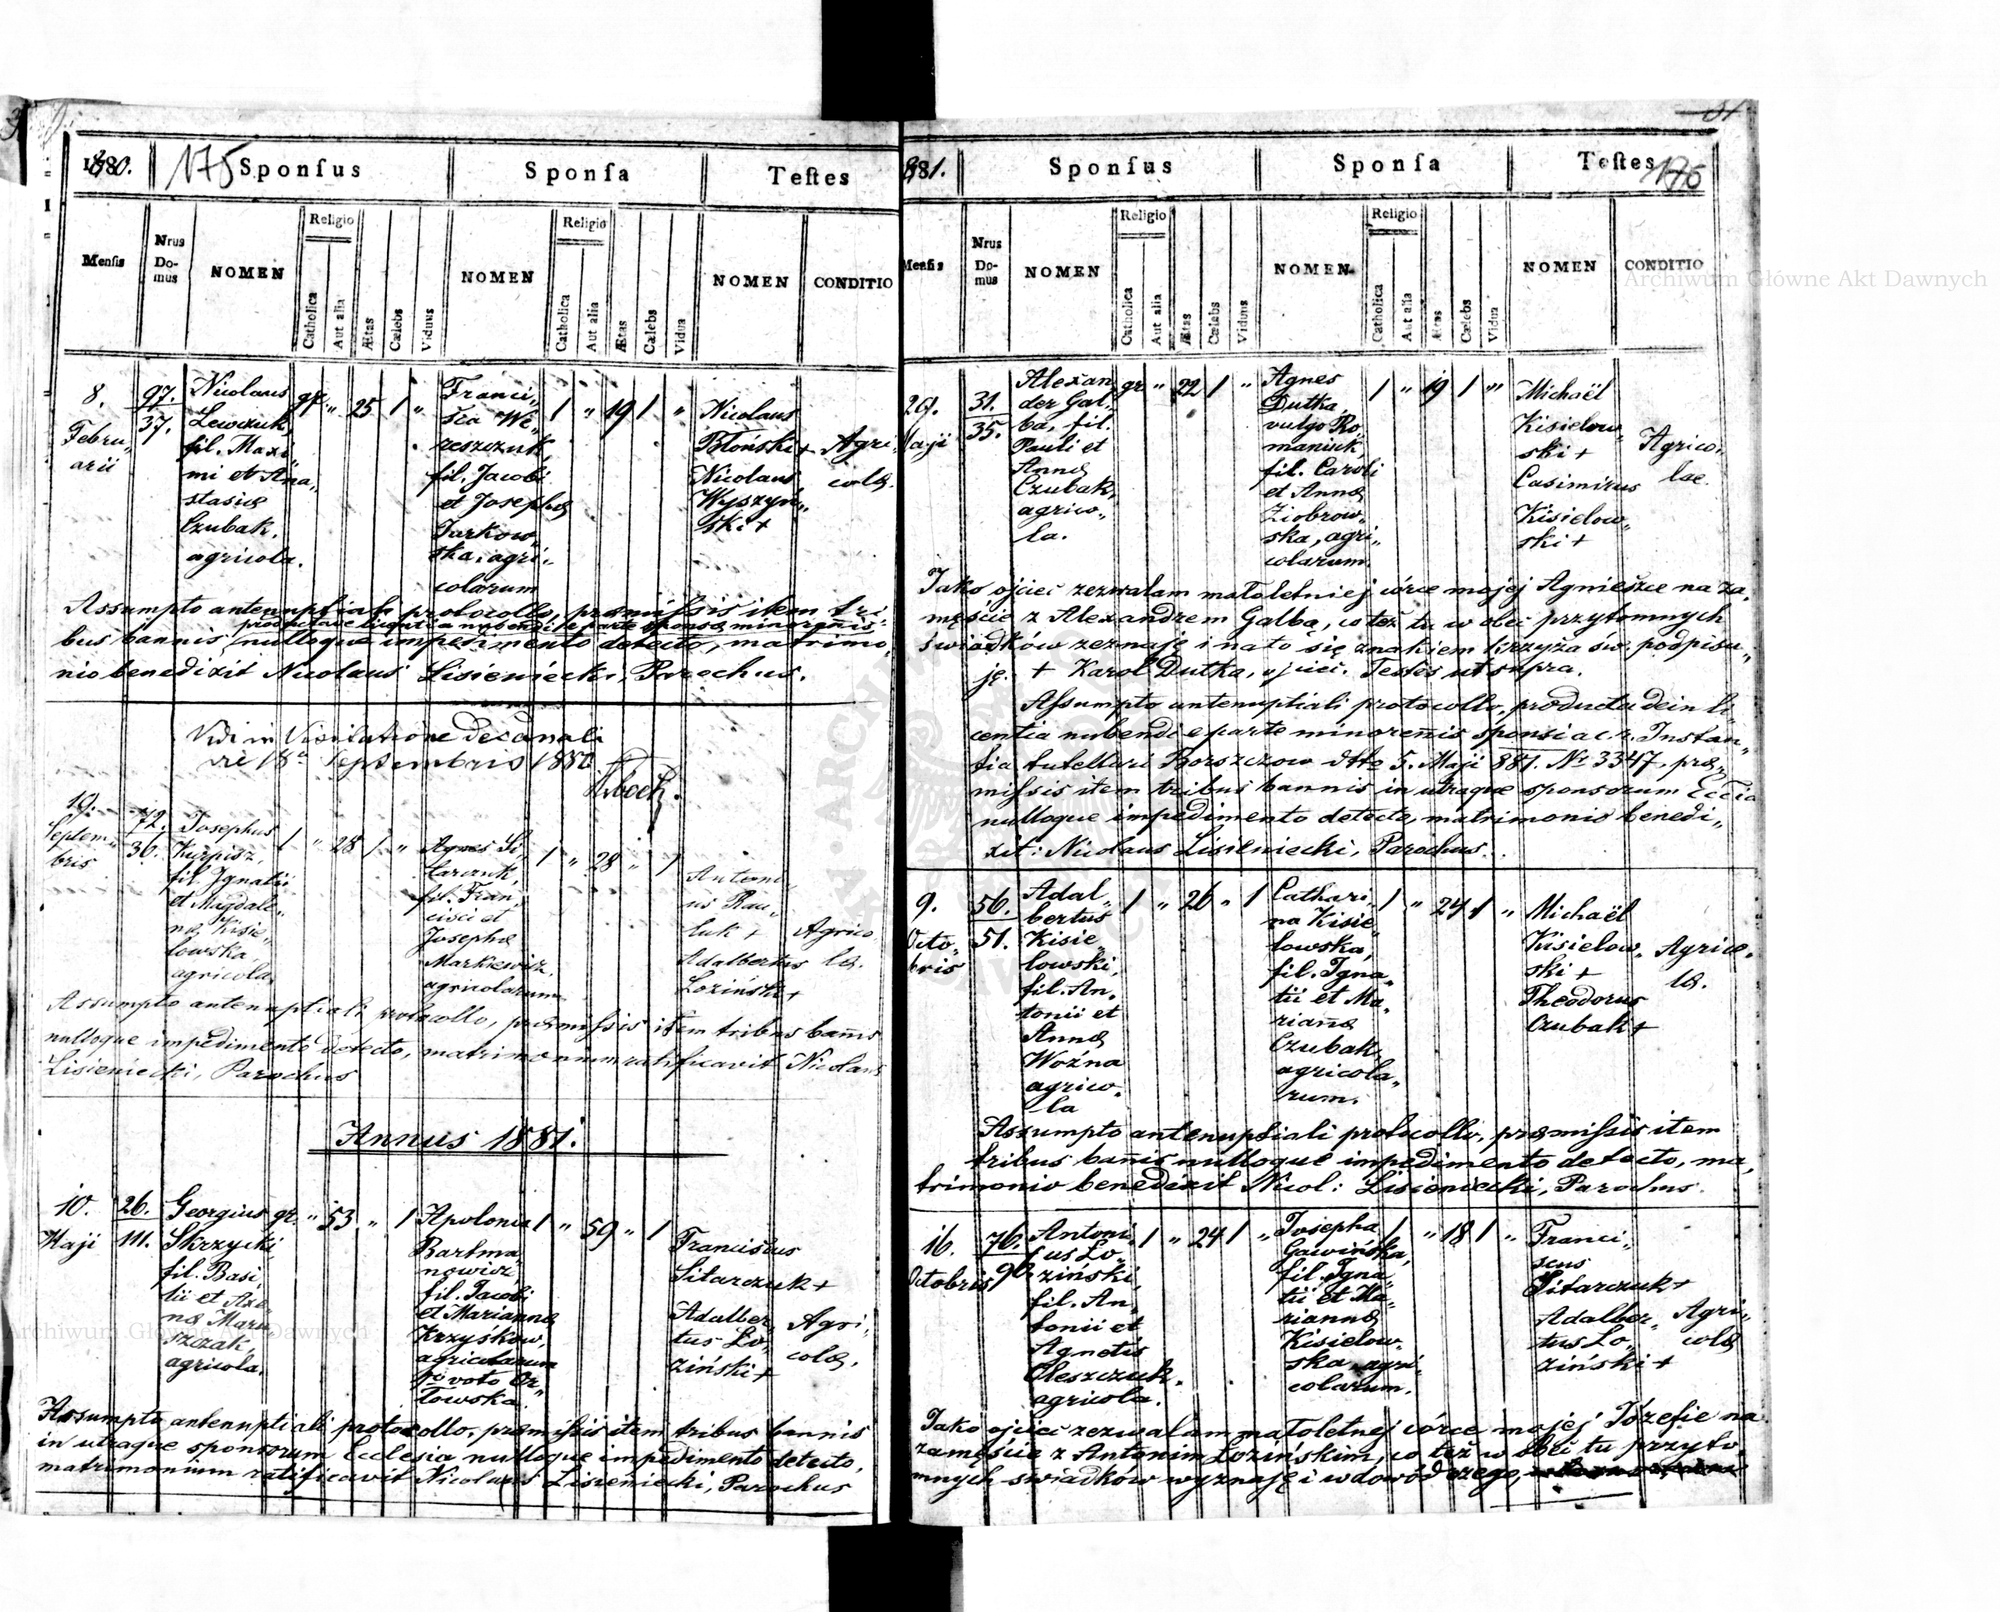 1880.
175
Sponſus
Sponſa
Teſtes
Menſis
Nrus Domus
NOMEN
Religio
Catholica
Aut alia
Ætas
Cælebs
Viduus
NOMEN
Religio
Catholica
Aut alia
Ætas
Cælebs
Vidua
NOMEN
CONDITIO
8.
Febru„
arii
97.
37.
Nicolaus
Lewczuk,
fil. Maxi„
mi et Ana„
stasiæ
Czubak.
agricola.
gr. „ 25 1 „
Franci„
sca We„
reszczuk,
fil. Jacobi
et Josephæ
Turkow„
ska, agri„
colarum
1 „ 19 1 „
Nicolaus
Błoński +
Nicolaus
Wyszyń„
ski +
Agri„
colæ.
Assumpto antenuptiali protocollo, præmissis item tri„
producta licentia nubendi e parte sponsæ minorenis
bus bannis, nulloque impedimento detecto, matrimo„
nio benedixit Nicolaus Lisieniecki, Parochus.
Vidi in Visitatione decanali
die 18a Septembris 1880
19.
Septem„
bris
72.
36.
Josephus
Kurpisz,
fil. Ignatii
et Magdale„
næ Kisie„
lowska,
agricola.
1 „ 28 1 „
Agnes Si„
tarczuk,
fil. Fran„
cisci et
Josephæ
Markiewicz.
agricolarum
1 „ 28 „ 1
Antoni„
us Rau„
luk +
Adalbertus
Loziński +
Agrico„
læ.
Assumpto antenuptiali protocollo, præmissis item tribus bannis
nulloque impedimento detecto, matrimonium ratificavit Nicolaus
Lisieniecki, Parochus
Annus 1881.
10.
Maji
26.
111.
Georgius
Skrzycki,
fil. Basi„
lii et Axe„
næ Maru„
szczak,
agricola.
gr. „ 53 „ 1
Apolonia
Bartma„
nowicz
fil. Jacobi
et Mariannæ
Krzyśkow,
agricolarum
1o voto Or„
łowska.
1 „ 59 „ 1
Franciscus
Sitarczuk +
Adalber„
tus Lo„
ziński +
Agri„
colæ.
Assumpto antenuptiali protocollo, præmissis item tribus bannis
in utraque sponsorum Ecclesia nulloque impedimento detecto,
matrimonium ratificavit Nicolaus Lisieniecki, Parochus
881.
Sponſus
Sponſa
Teſtes
176
Menſis
Nrus Domus
NOMEN
Religio
Catholica
Aut alia
Ætas
Cælebs
Viduus
NOMEN
Religio
Catholica
Aut alia
Ætas
Cælebs
Vidua
NOMEN
CONDITIO
29.
Maji
31.
35.
Alexan„
der Gal„
ba, fil.
Pauli et
Annæ
Czubak,
agrico„
la.
gr „ 22 1 „
Agnes
Dutka,
vulgo Ro„
maniuk,
fil. Caroli
et Annæ
Ziobrow„
ska, agri„
colarum.
1 „ 19 1 „
Michaël
Kisielow„
ski +
Casimirus
Kisielow„
ski +
Agrico„
lae.
Jako ojciec zezwalam małoletniej córce mojej Agnieszce na za„
męście z Alexandrem Galbą, co też tu w obec przytomnych
świadków zeznaję i na to się znakiem krzyża św. podpisu„
ję. + Karol Dutka, ojciec. Testes ut supra.
Assumpto antenuptiali protocollo, producta dein li„
centia nubendi e parte minorenis sponsi a c. r. Instan„
tia tutellari Borszczow dtto 5. Maji 881. No 3347, præ„
missis item tribus bannis in utraque sponsorum Ecclia
nulloque impedimento detecto, matrimonio benedi„
xit: Nicolaus Lisieniecki, Parochus.
9.
Octo„
bris
56.
51.
Adal„
bertus
Kisie„
lowski,
fil. An„
tonii et
Annæ
Woźna
agrico„
la
1 „ 26 „ 1
Cathari„
na Kisie„
lowska,
fil. Igna„
tii et Ma„
riannæ
Czubak,
agricola„
rum.
1 „ 24 1 „
Michaël
Kisielow„
ski +
Theodorus
Czubak +
Agrico„
læ.
Assumpto antenuptiali protocollo, præmissis item
tribus bannis nulloque impedimento detecto, ma„
trimonio benedixit Nicol: Lisieniecki, Parochus.
16.
Octobris
76.
90.
Antoni„
us Lo„
ziński,
fil. An„
tonii et
Agnetis
Oleszczuk.
agricola.
1 „ 24 1 „
Josepha
Gawińska,
fil. Igna„
tii et Ma„
riannæ
Kisielow„
ska agri„
colarum.
1 „ 18 1 „
Franci„
scus
Sitarczuk +
Adalber„
tus Lo„
ziński +
Agri„
colæ
Jako ojciec zezwalam małoletnej córce mojej Józefie na
zamęście z Antonim Łozińskim, co też w obec tu przyto„
mnych świadków wyznaję i w dowód czego,
Archiwum Główne Akt Dawnych
Archiwum Główne Akt Dawnych